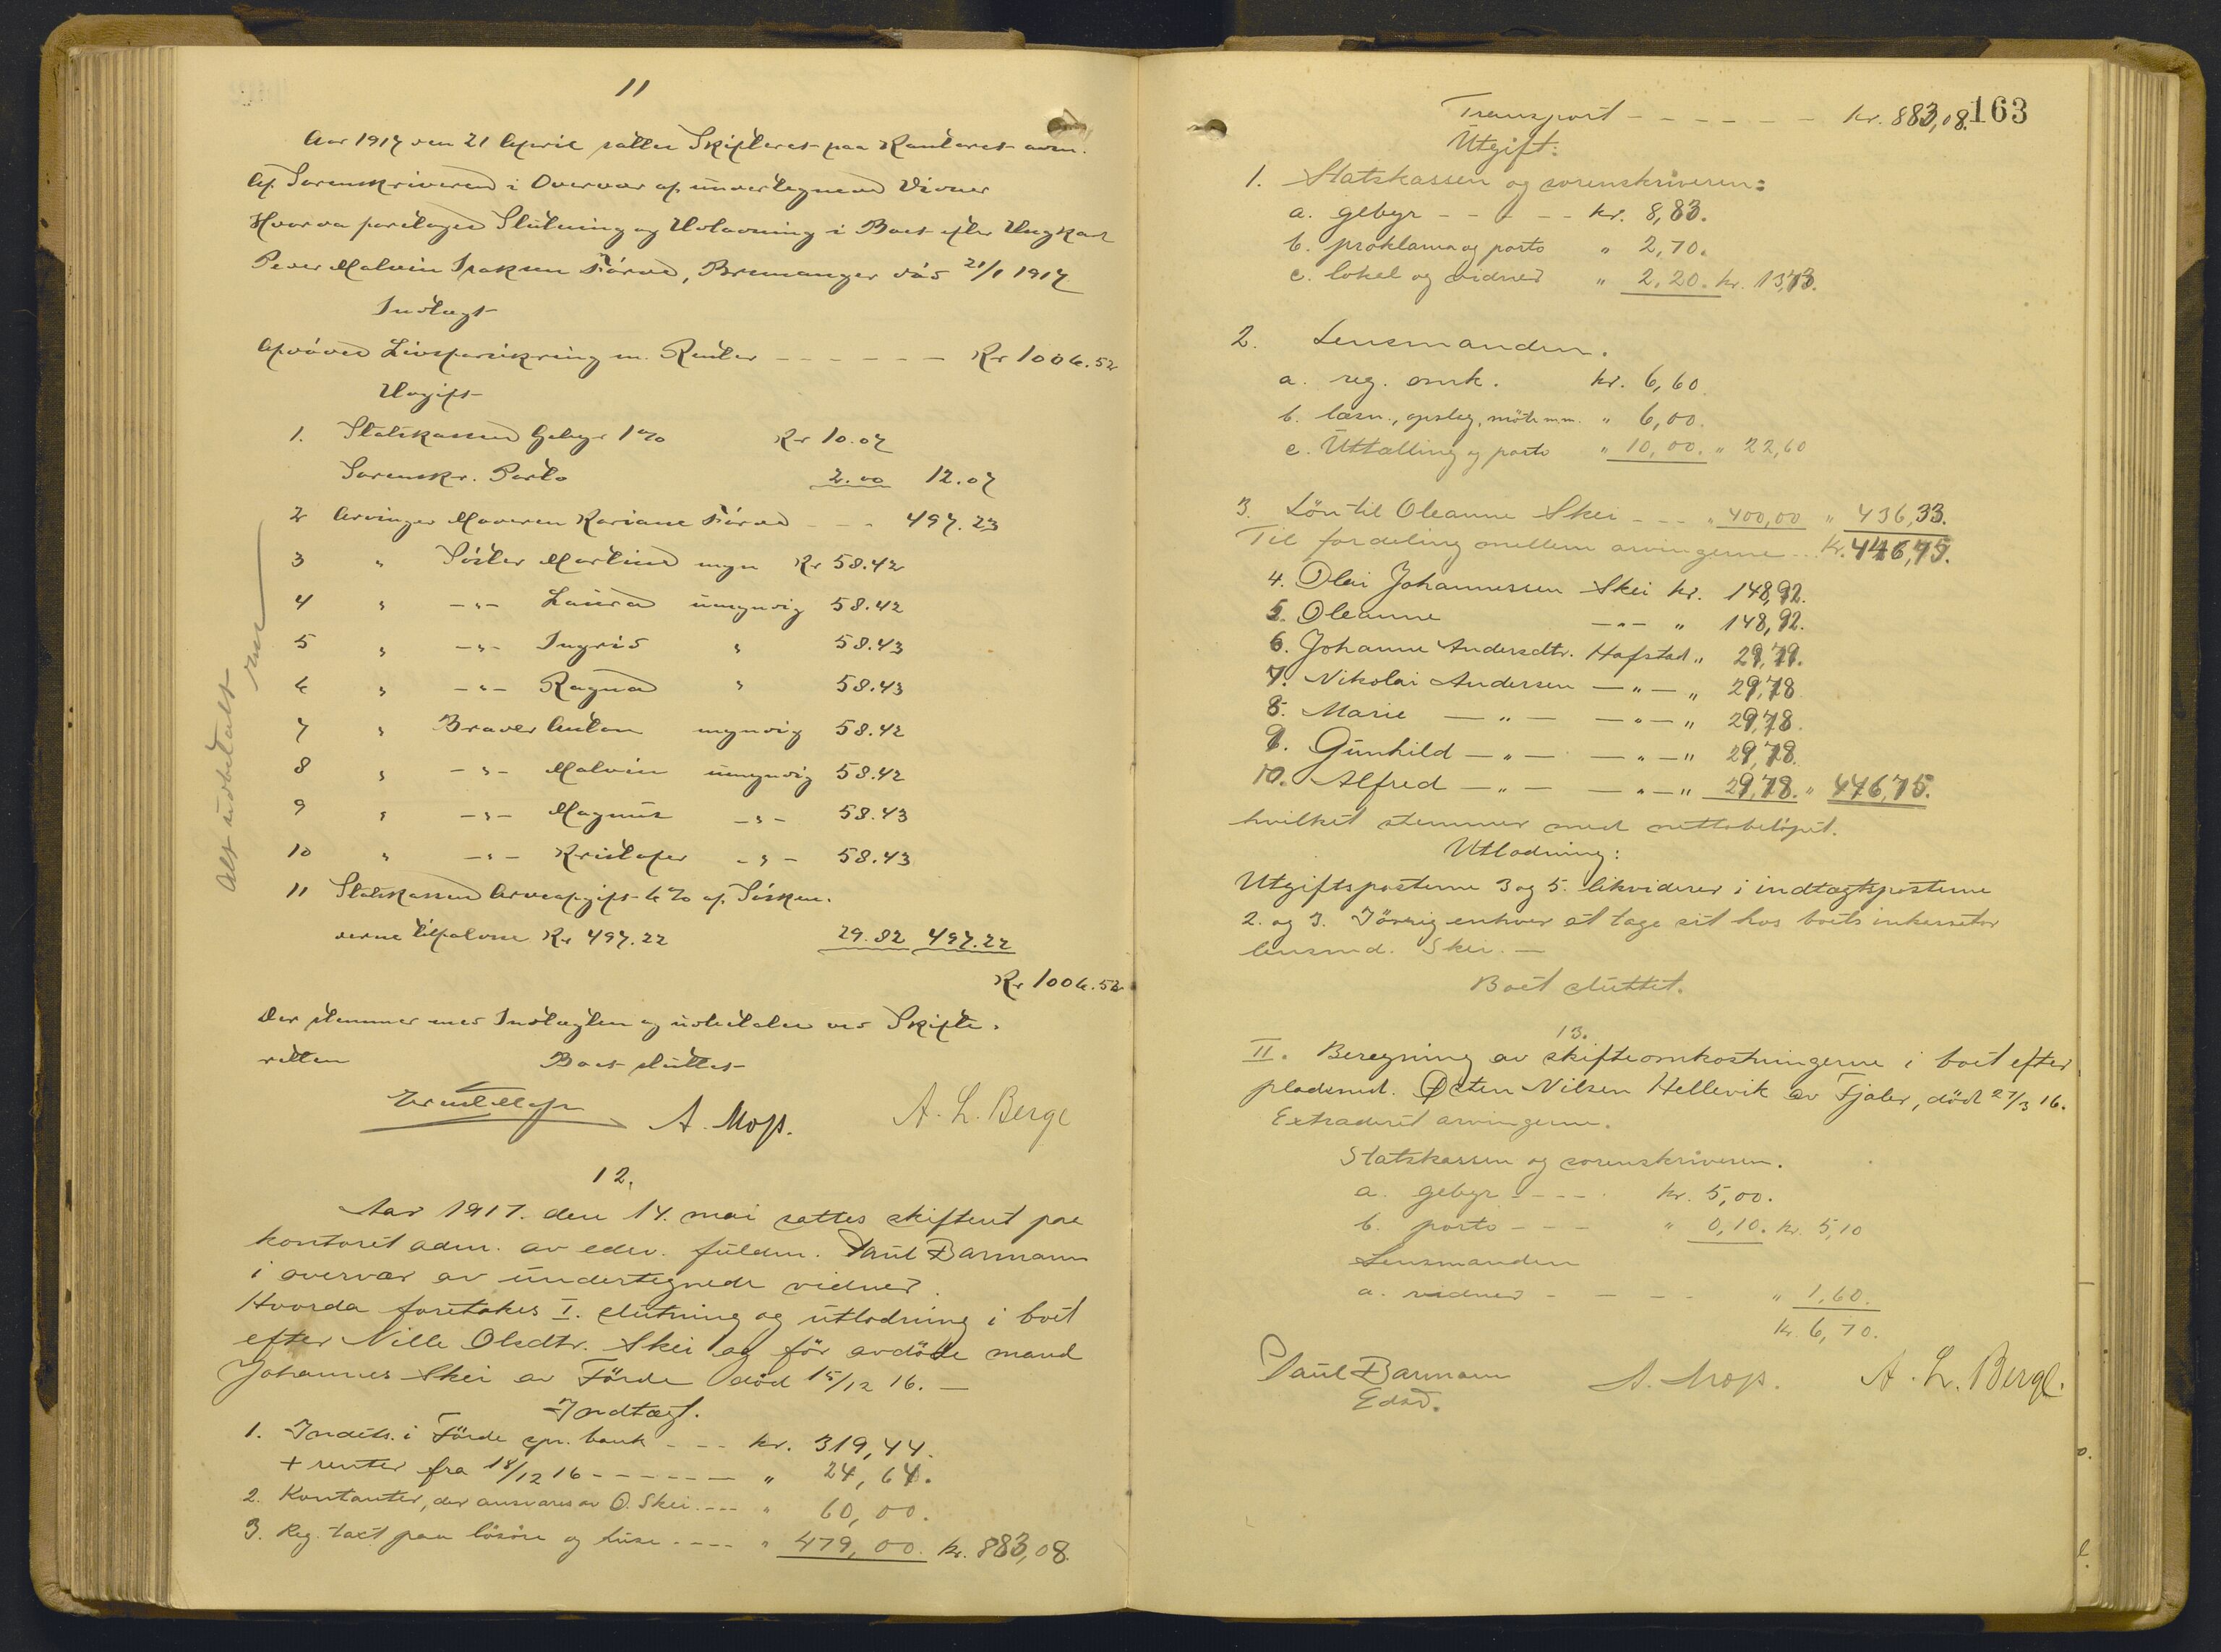 11
Aar 1917 den 21 April sattes Skifteret paa Kontoret adm.
af Sorenskriveren i Overvær af undertegnede Vidner
Hvorda foretages Slutning og Udlodning i Boet efter Ungkarl
Peder Malvin Isaksen Førde, Bremanger død 21/1 1917
Indtægt
Afdødes Livsforsikring m. Renter - - - - - - Kr 1006.52
Udgift
1. Statskassen Gebyr 1% Kr 10.07
Sorenskr. Porto 2.00 12.07
2 Arvinger Moderen Kariane Førde - - - 497.23
3 " Søster Martine myn Kr 58.42
4 " -"- Laura umyndig 58.42
5 " -"- Ingrid " 58.43
6 " -"- Ragna " 58.43
7 " Broder Anton myndig 58.42
8 " -"- Malvin umyndig 58.42
9 " -"- Magnus -"- 58.43
10 " -"- Kristofer -"- 58.43
11 Statskassen Arveafgift 6% af Søsken-
derne tilfaldne Kr 497.22 29.82 497.22
Kr 1006.52
Der stemmer med Indtægten og udbetales ved Skifte-
retten Boet sluttet
Alt udbetalt
A. Mops. A. L. Berge
12.
Aar 1917. den 14. mai sattes skifteret paa
kontoret adm. av edsv. fuldm. Paul Barmann
i overvær av undertegnede vidner.
Hvorda foretakes I. slutning og utlodning i boet
efter Nille Olsdtr. Skei og før avdöde mand
Johannes Skei av Förde död 15/12 16. —
Indtægt.
1. Indest. i Förde spr. bank - - - kr. 319,44.
+ renter fra 18/12 16 - - - - - - " 24,64.
2. Kontanter, der ansvares av O. Skei. - - - " 60,00.
3. Reg. taxt paa lösöre og huse. - - - - " 479,00. kr. 883,08.
163
Transport - - - - - - - kr. 883,08.
Utgift:
1. Statskassen og sorenskriveren:
a. gebyr - - - - - kr. 8,83.
b. proklama og porto " 2,70.
c. lokal og vidner " 2,20. kr. 13,73.
2. Lensmanden.
a. reg. omk. kr. 6,60.
b. læsn., opslag, möte m.m. " 6,00.
c. Uttælling og porto " 10,00. " 22,60
3. Lön til Oleanne Skei - - - " 400,00 " 436,33.
Til fordeling mellem arvingerne - - - Kr. 446,75.
4. Olai Johannessen Skei kr. 148,92.
5. Oleanne -"- " 148,92.
6. Johanne Andersdtr. Hafstad " 29,79.
7. Nikolai Andersen —"— " 29,78
8. Marie —"— —"— " 29,78.
9. Gunhild —"— —"— " 29,78.
10. Alfred —"— —"— " 29,78. " 446,75.
hvilket stemmer med nettobelöpet.
Utlodning:
Utgiftsposterne 3 og 5. likviderer i indtægtsposterne
2. og 3. Iövrig enhver at tage sit hos boets inkassator
lensmd. Skei. —
Boet sluttet.
13.
II. Beregning av skifteomkostningerne i boet efter
pladsmd. Østen Nilsen Hellevik av Fjaler, död 27/3 16.
Extraderet arvingerne.
Statskassen og sorenskriveren.
a. gebyr - - - - kr. 5,00.
b. porto - - - " 0,10. kr. 5,10
Lensmanden
a. vidner - - - - " 1,60.
Kr. 6,70.
Paul Barmann A. Mops. A. L. Berge.
Edsv.